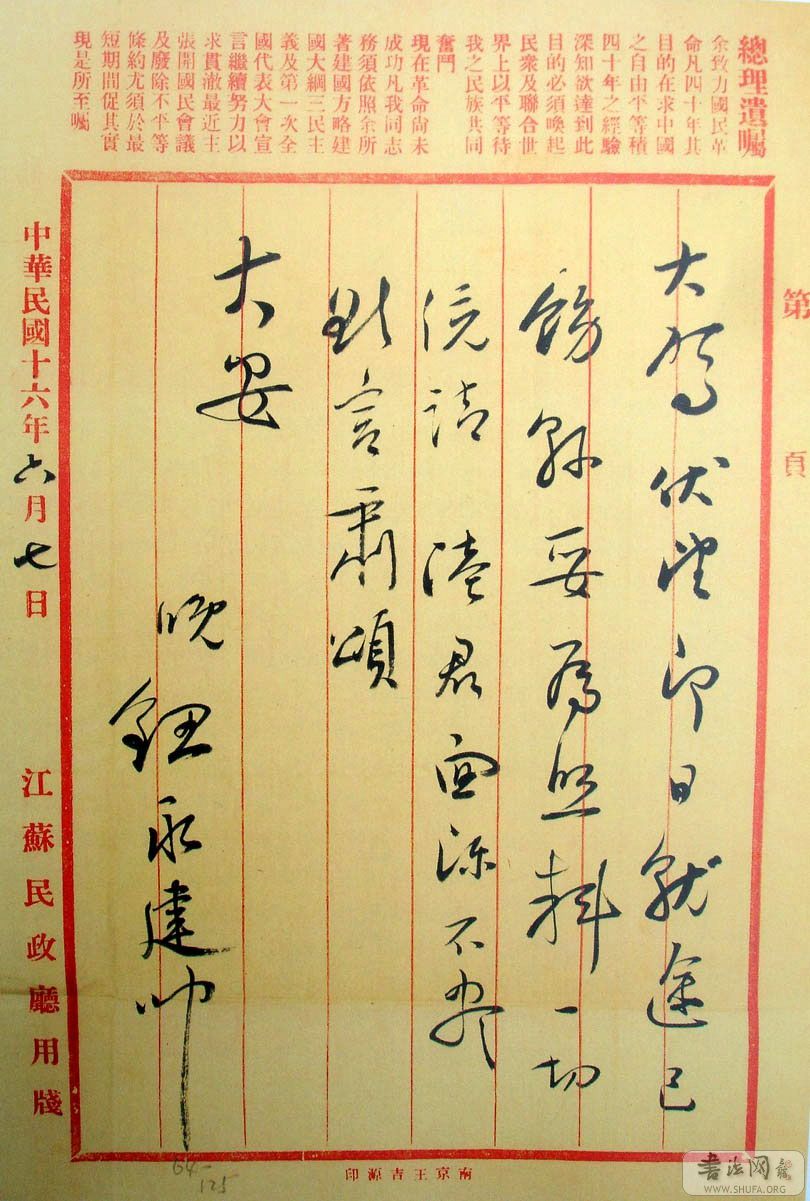 總理遺囑
余致力國民革
命凡四十年其
目的在求中國
之自由平等積
四十年之經驗
深知欲達到此
目的必須喚起
民衆及聯合世
界上以平等待
我之民族共同
奮鬥
現在革命尚未
成功凡我同志
務須依照余所
著建國方略建
國大綱三民主
義及第一次全
國代表大會宣
言繼續努力以
求貫澈最近主
張開國民會議
及廢除不平等
條約尤須於最
短期間促其實
現是所至囑
第 頁
大駕伏望即日就途已
飭縣妥爲照料一切
統請 君面陳不盡
言肅頌
大安
晚鈕永建叩
中華民國十六年六月七日
江蘇民政廳用牋
南京王吉源印
64-
125
书法网
WWW.SHUFA.ORG